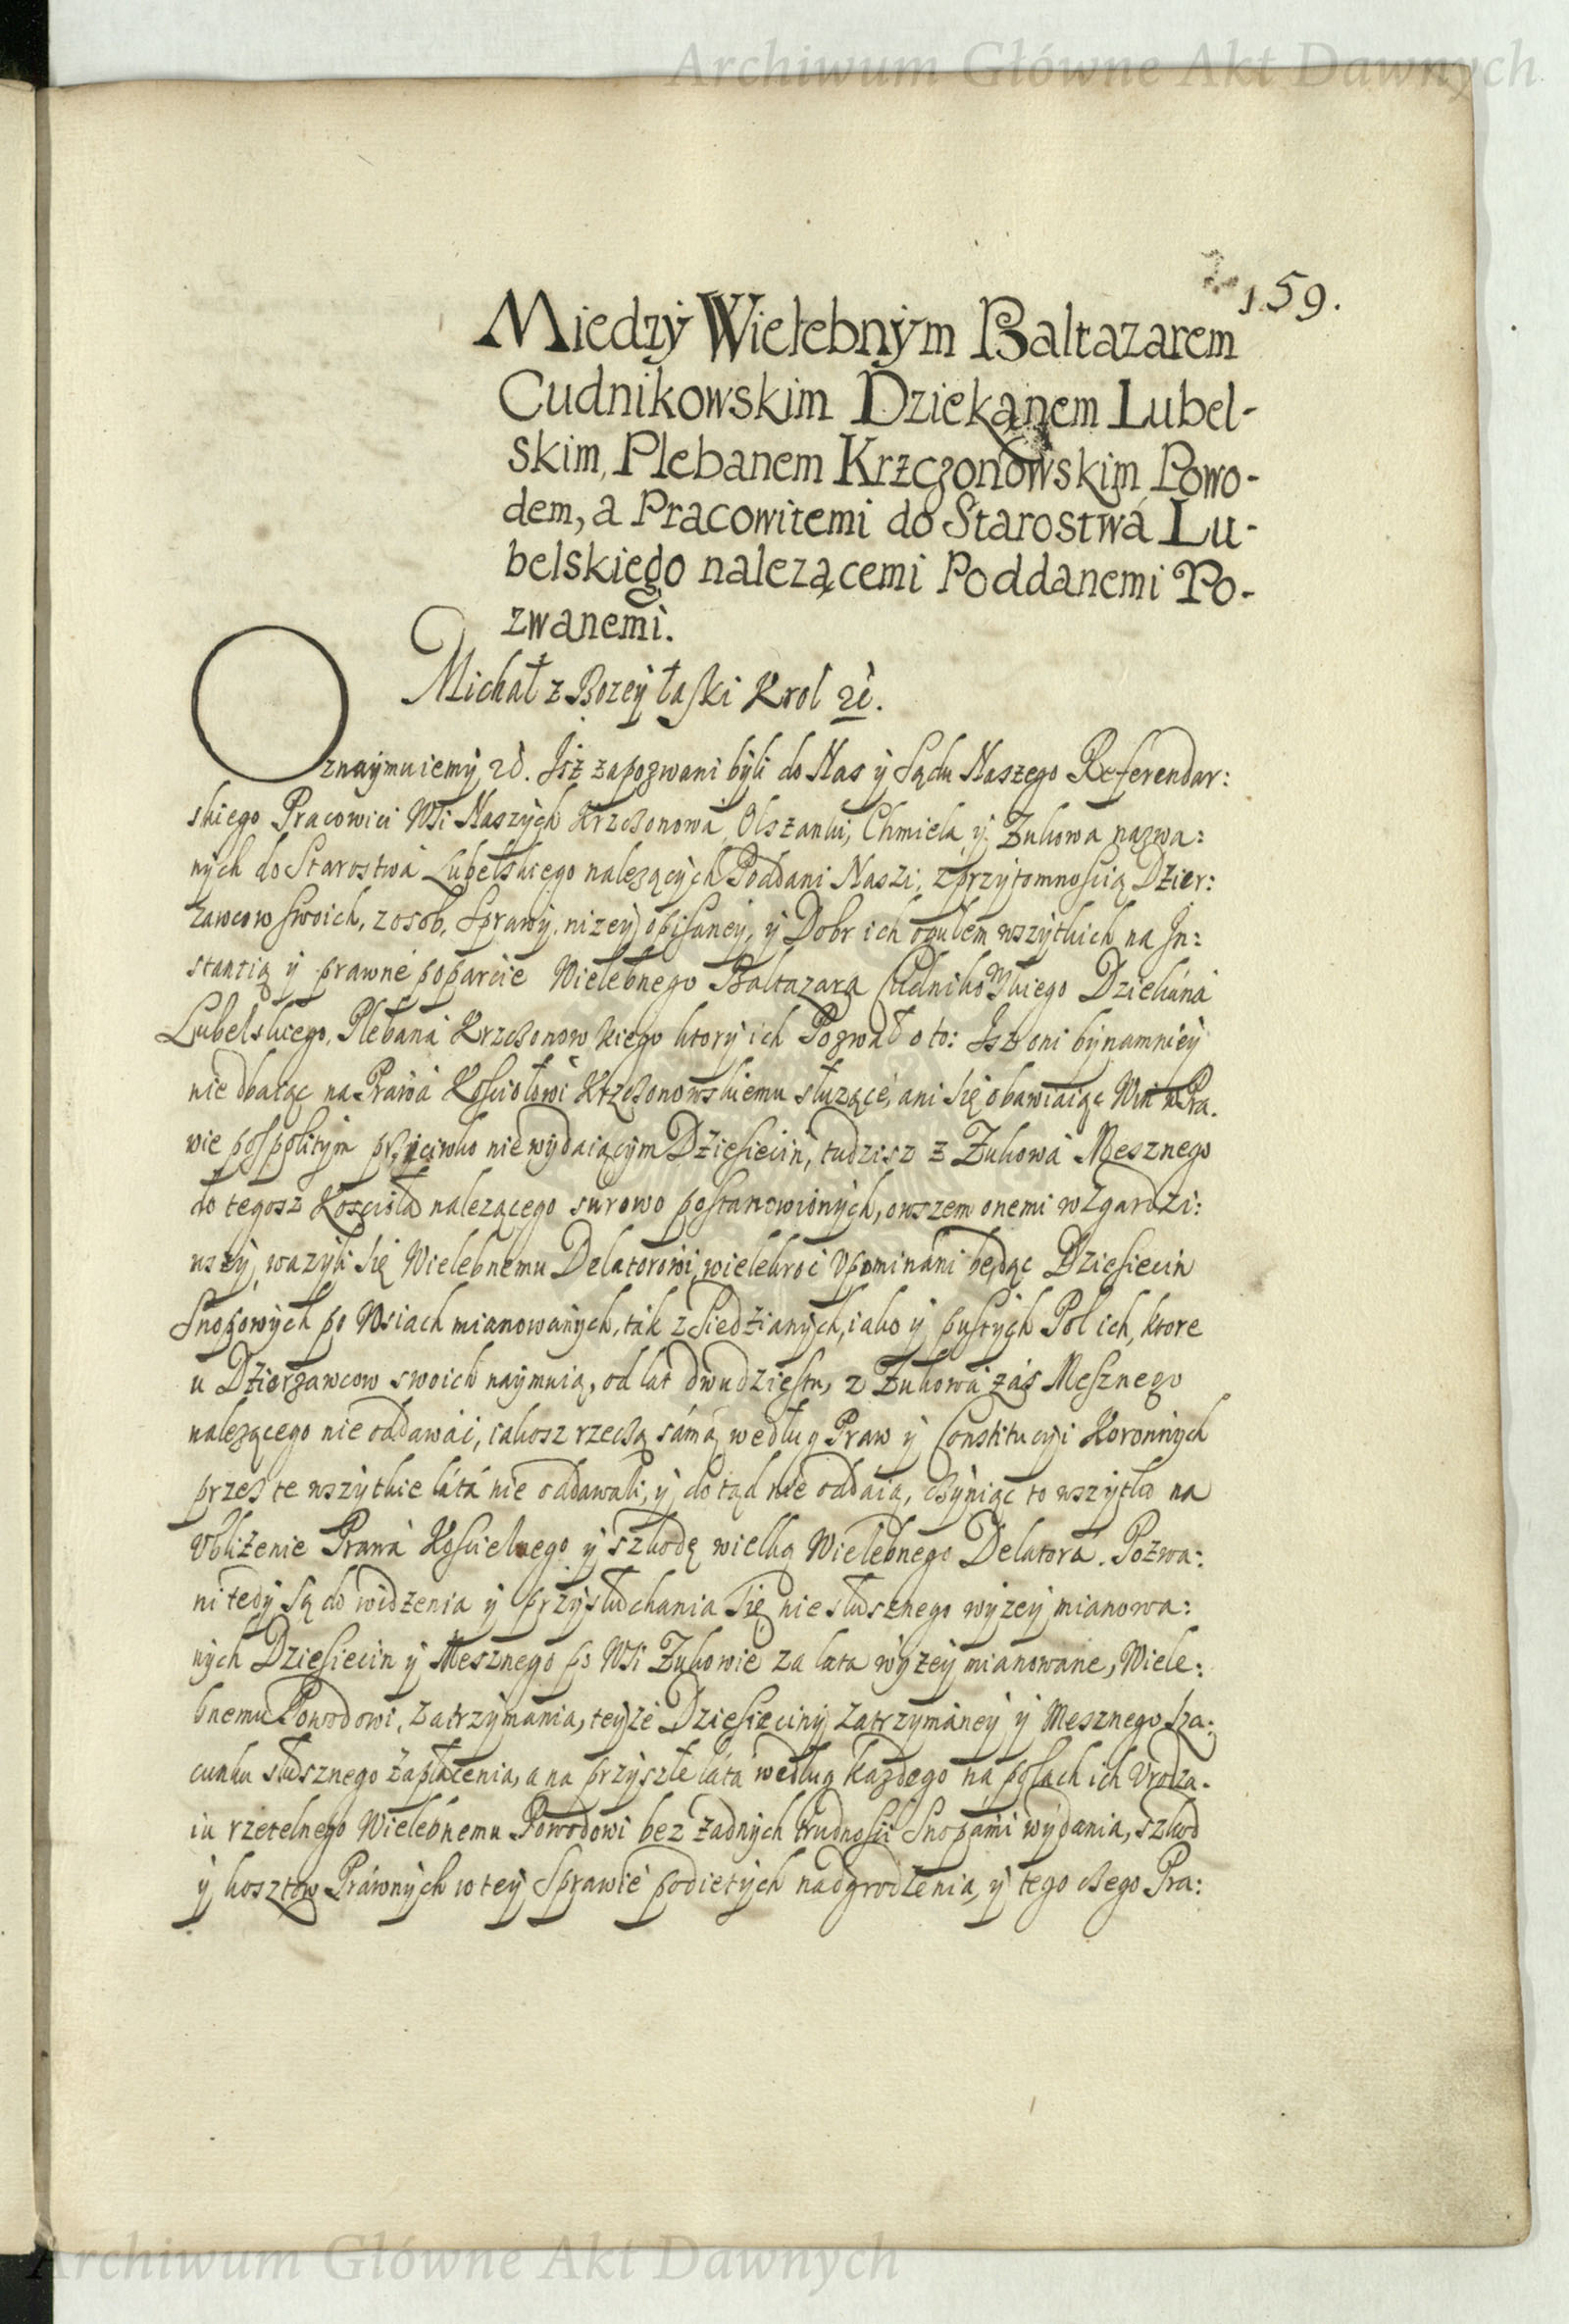 Archiwum Główne Akt Dawnych
159.
Miedzÿ Wielebnÿm Baltazarem
Cudnikowskim Dziekąnem Lubel-
skim, Plebanem Krzczonowskim Powo-
dem, a Pracowitemi do Starostwá Lu-
belskiego nalezącemi Poddanemi Po-
zwanemi.
Michał z Bozeÿ łaski Krol
Oznaÿmuiemÿ, Isz zapozwani bÿli do Nas ÿ Sądu Naszego Referendar:
skiego Pracowici Wsi Naszÿch Krzczonowá, Olszanki, Chmiela, ÿ Zukowa nazwa:
nÿch do Starostwá Lubelskiego nalezącÿch Poddani Naszi, z przÿtomnoscią Dzier:
zawcow swoich, z osob, Sprawÿ, nizeÿ opisaneÿ, ÿ Dobr ich ogułem wszÿtkich na In:
stantią ÿ prawne poparcie Wielebnego Baltazara Cudnikowskiego Dziekána
Lubelskiego, Plebaná Krzczonowskiego ktorÿ ich Pozwał o to: Isz oni bÿnamnieÿ
nie dbaiąc na Prawá Kosciołowi Krzczonowskiemu słuzące, ani się obawiaiąc Win w Pra.
wie pospolitÿm przeciwko nie wÿdaiącÿm Dziesiecin, tudzisz z Zukowá Mesznego
do tegosz Kosciołá nalezącego surowo postanowionÿch, owszem onemi wzgardzi:
wszÿ, wazÿli się Wielebnemu Delatorowi, wielekroc vpominani będąc Dziesiecin
Snopowÿch po Wsiach mianowanÿch, ták z Siedzianÿch, iako ÿ pustÿch Pol ich, ktore
u Dzierzawcow swoich naÿmuią, od lat dwudziestu, z Zukowá záś Mesznego
nalezącego nie oddawáć, iakosz rzeczą sámą według Praw ÿ Constitucÿi Koronnÿch
przez te wszÿtkie látá nie oddawali, ÿ do tąd nie oddaią, czÿniąc to wszÿtko na
vbliżenie Prawá Koscielnego ÿ szkodę wielką Wielebnego Delatorá. Pozwa:
ni tedÿ są do widzenia ÿ przÿsłuchania się niesłusznego wÿzeÿ mianowa:
nÿch Dziesiecin ÿ Mesznego po Wsi Zukowie za lata wÿzeÿ mianowane, Wiele:
bnemu Powodowi, zatrzÿmania, teÿze Dziesiecinÿ zatrzÿmáneÿ ÿ Mesznego sza:
cunku słusznego zapłacenia, a na przÿszłe látá według kazdego na polach ich vrodza.
iu rzetelnego Wielebnemu Powodowi bez zadnÿch trudnosci Snopámi wÿdania, szkod
ÿ kosztow Práwnÿch w teÿ Sprawie podietÿch nadgrodzenia, ÿ tego czego Pra:
Archiwum Główne Akt Dawnych